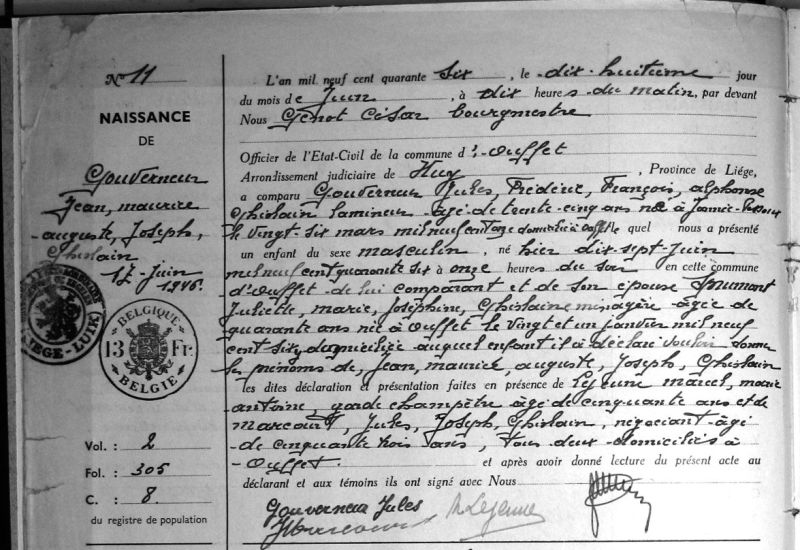 N° 11
NAISSANCE
DE
Gouverneur
Jean, maurice
auguste, Joseph,
Ghislain
17 - Juin
1946.
LIEGE-LUIK
BELGIQUE
13 Fr.
BELGIE
Vol. : 2
Fol. : 305
C. : 8
du registre de population
L'an mil neuf cent quarante Six, le dix-huitième jour
du mois de Juin, à dix heures du matin, par devant
Nous Genot César bourgmestre
Officier de l'Etat-Civil de la commune d'Ouffet
Arrondissement judiciaire de Huy, Province de Liége,
a comparu Gouverneur Jules, Frédéric, François, alphonse
Ghislain lamineur âgé de trente-cinq ans né à
le vingt-six mars mil neuf cent onze domicilié à Ouffet le quel nous a présenté
un enfant du sexe masculin, né hier dix-sept-juin
mil neuf cent quarante six à onze heures du soir en cette commune
d'Ouffet de lui comparant et de son épouse
Juliette, marie, Joséphine, Ghislaine ménagère âgée de
quarante ans née à Ouffet le vingt et un janvier mil neuf
cent six y domiciliée auquel enfant il a déclaré vouloir donner
les prénoms de, Jean, maurice, auguste, Joseph, Ghislain
les dites déclaration et présentation faites en présence de Lejeune marcel, marie
antoine, garde champêtre âgé de cinquante ans et de
marcourt, Jules, Joseph, Ghislain, négociant âgé
de cinquante trois ans, tous deux domiciliés à
Ouffet. et après avoir donné lecture du présent acte au
déclarant et aux témoins ils ont signé avec Nous
Gouverneur Jules
Lejeune